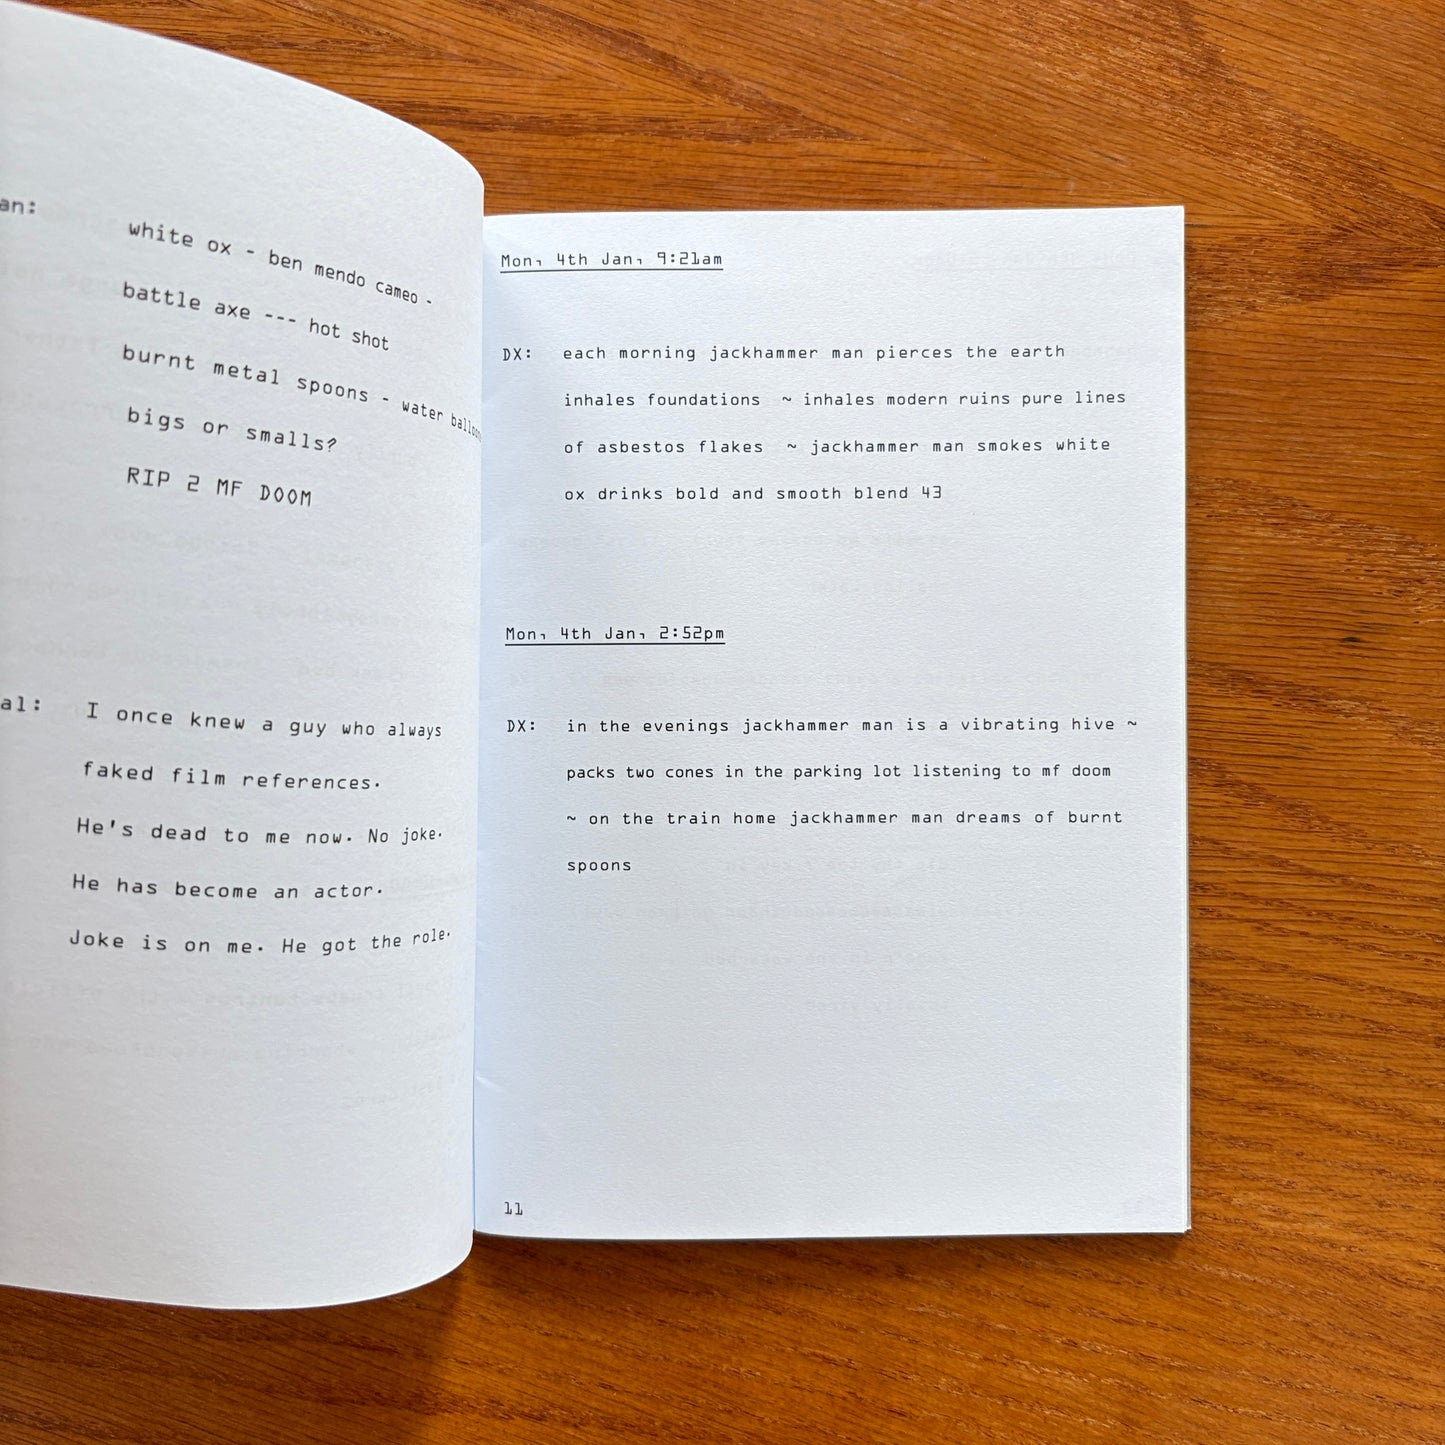 an:
white ox - ben mendo cameo -
battle axe --- hot shot
burnt metal spoons - water balloons
bigs or smalls?
RIP 2 MF DOOM
al:
I once knew a guy who always
faked film references.
He's dead to me now. No joke.
He has become an actor.
Joke is on me. He got the role.
Mon, 4th Jan, 9:21am
DX: each morning jackhammer man pierces the earth
inhales foundations ~ inhales modern ruins pure lines
of asbestos flakes ~ jackhammer man smokes white
ox drinks bold and smooth blend 43
Mon, 4th Jan, 2:52pm
DX: in the evenings jackhammer man is a vibrating hive ~
packs two cones in the parking lot listening to mf doom
~ on the train home jackhammer man dreams of burnt
spoons
11